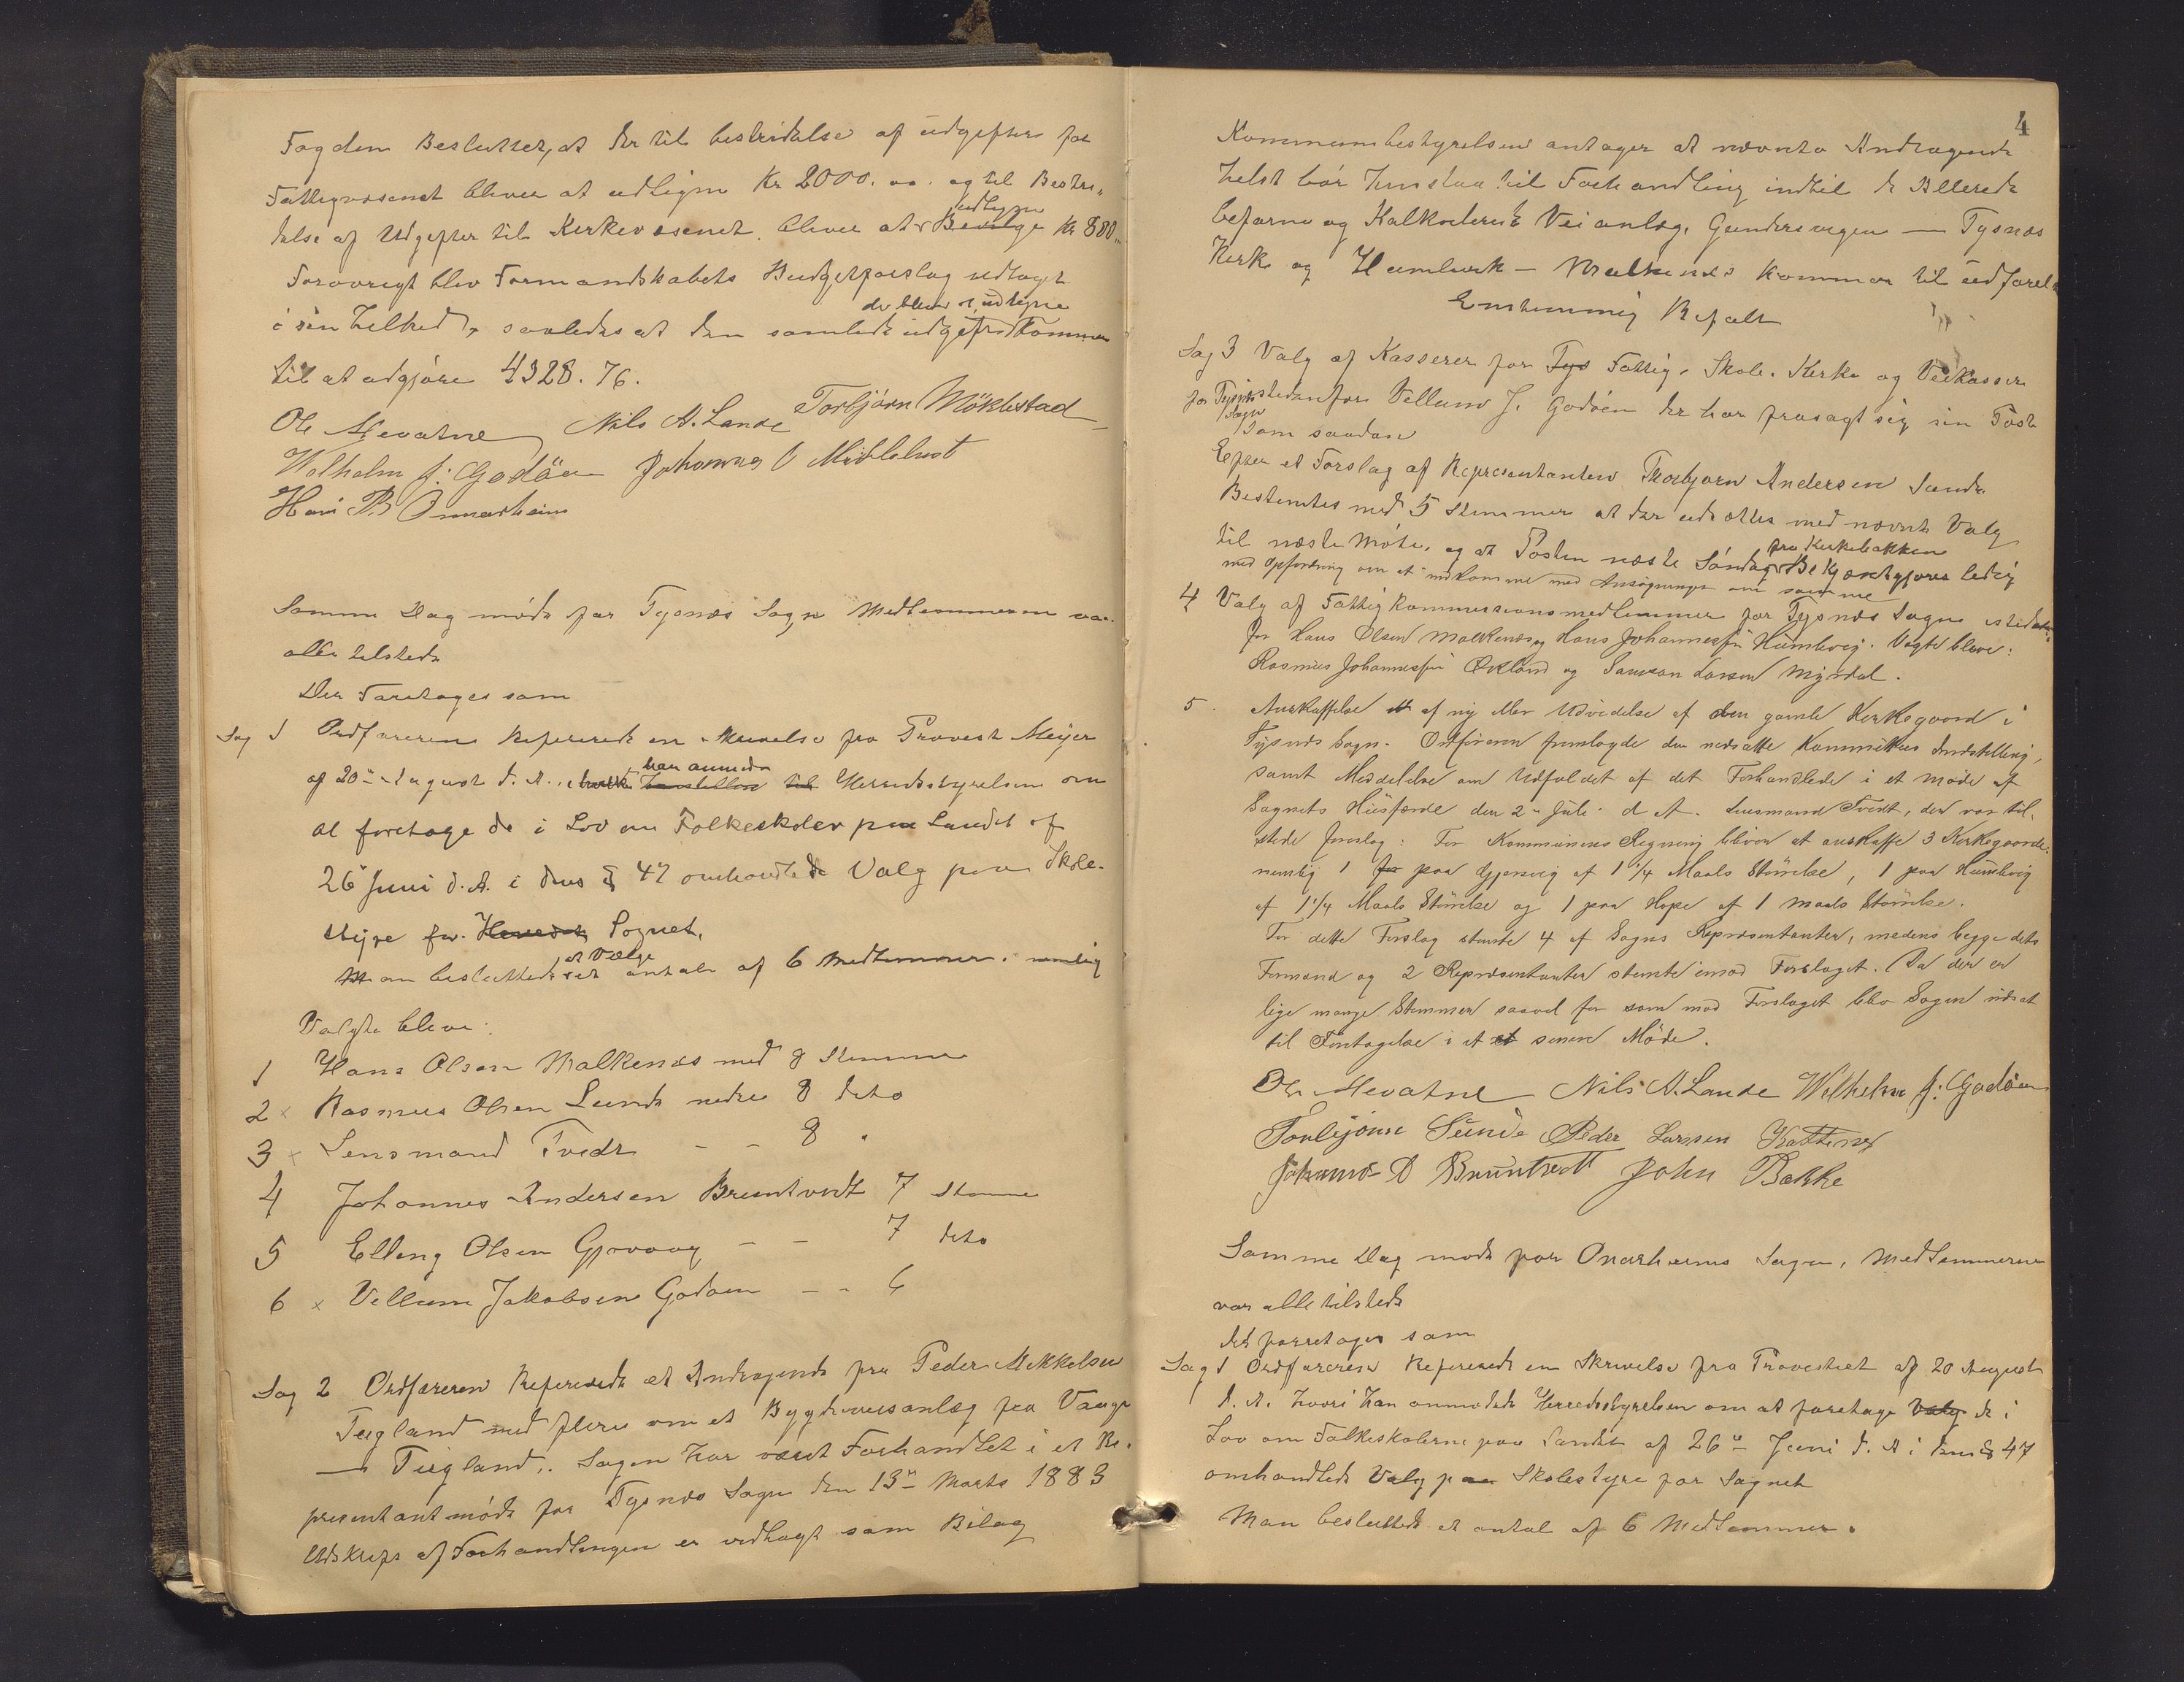 Fogden Beslutter, at der til bestridelse af udgifter for
Fattigvæsenet bliver at udligne Kr 2000.00. og til Bestri-
delse af Udgifter til Kirkevæsenet bliver at udligne Bevilge Kr 800
Forøvrigt blev Formandskabets Budgetforslag vedtagt
i sin helhed, saaledes at den samlede udgift der bliver at udligne kommer
til at udgjøre 4328.76.
Ole Mevatne Nils A. Lande Torbjörn Möklestad
Welhelm J: Godöen Johannes O Mikkelhest
Hans B Onnarheim
Samme Dag møde for Tysnæs Sogn Medlemmerne var
alle tilstede
Der Foretoges som
Sag 1 Ordføreren Refererede en Skrivelse fra Provst Meijer
af 20de August d. A., hvori han anmoder Herredsstyrelsen om
at foretage de i Lov om Folkeskolen paa Landet af
26 Juni d. A. i dens § 47 omhandlede Valg paa Skole-
styre for Herredet Sognet.
Man besluttede at Vælge et antal af 6 Medlemmer. nemlig
Valgte bleve:
1 Hans Olsen Malkenæs med 8 Stemmer
2 x Rasmus Olsen Lunde nedre 8 dito
3 x Lensmand Tvedt - - 8 "
4 Johannes Andersen Bruntvedt 7 Stemmer
5 Elling Olsen Gjøvaag - - 7 dito
6 x Vellum Jakobsen Godøen - - 6
Sag 2 Ordføreren Refererede et Andragende fra Peder Mikkelsen
Teigland med flere om et Bygdeveisanlæg fra Vaage
— Teigland. Sagen har været Forhandlet i et Re-
presentantmøde for Tysnæs Sogn den 13de Marts 1883
Udskrift af Forhandlingen er vedlagt som Bilag
4
Kommunebestyrelsen antager at nævnte Andragende
helst bør henstaa til Forhandling indtil de Allerede
befarne og Kalkulerede Veianlæg, Gundersvegen — Tysnæs
Kirke og Humlevik — Malkenæs kommer til udførelse
Enstemmig Bifalt
Sag 3 Valg af Kasserer for Tys Fattig, Skole, Kirke og Veikasser
for Tysnæs Sogn istedenfor Vellum J. Godøen der har frasagt sig sin Post
som saadan
Efter et Forslag af Representanten Thorbjørn Andersen Sunde
Bestemtes med 5 Stemmer at der udsættes med nævnte Valg
til næste Møte, og at Posten næste Søndag fra Kirkebakken Bekjendtgjøres ledig
med Opfordring om at indkomme med Ansøgninger om samme
4 Valg af Fattigkommissionsmedlemmer for Tysnæs Sogn istedenfor
for Hans Olsen Malkenæs og Hans Johannessen Humlevig. Valgte bleve:
Rasmus Johannessen Økland og Samson Larsen Myrdal.
5. Anskaffelse af ny eller Udvidelse af den gamle Kirkegaard i
Tysnæs Sogn. Ordføreren fremlagde den nedsatte Kommitees Indstilling,
samt Meddelelse om Udfaldet af det Forhandlede i et møde af
Sognets Husfædre den 2den Juli d. A. Lensmand Tvedt, der var til-
stede foreslog: For Kommunens Regning bliver at anskaffe 3 Kirkegaarde:
nemlig 1 for paa Gjersvig af 1 1/4 Maals Størrelse, 1 paa Humlevig
af 1 1/4 Maals Størrelse og 1 paa Hope af 1 Maals Størrelse.
For dette Forslag stemte 4 af Sogns Repræsentanter, medens begge dets
Formænd og 2 Repræsentanter stemte imod Forslaget. Da der er
lige mange Stemmer saavel for som mod Forslaget blev Sagen udsat
til Foretagelse i et et senere Möde.
Ole Mevatne Nils A. Lande Welhelm J: Godöen
Torbjönn Sunde Peder Larssen Hatteras
Johannes A Bruntvedt John Bakke
Samme Dag møde for Onarheims Sogn, Medlemmerne
var alle tilstede
Det foretoges som
Sag 1 Ordføreren Refererede en Skrivelse fra Provstiet af 20 August
d. A. hvori han anmodede Herredsstyrelsen om at foretage Valg de i
Lov om Folkeskolerne paa Landet af 26de Juni d. A i dens § 47
omhandlede Valg paa Skolestyre for Sognet
Man besluttede et antal af 6 Medlemmer.